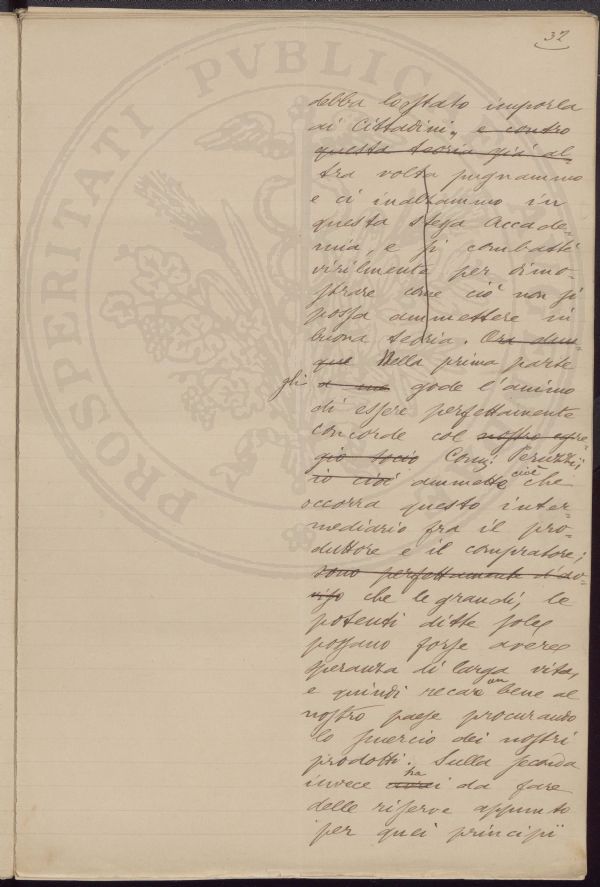 32
debba lo stato imporla
ai Cittadini, e contro
questa teoria già al-
tra volta pugnammo
e ci inalzammo in
questa stessa Accade-
mia, e si combatté
virilmente per dimo-
strare come ciò non si
possa ammettere in
buona teoria. Ora dun-
que Nella prima parte
gli a me gode l'animo
di essere perfettamente
concorde col nostro egre-
gio socio Comm. Peruzzi;
io cioè ammette cioè che
occorra questo inter-
mediario fra il pro-
duttore e il compratore;
sono perfettamente d'av-
viso che le grandi, le
potenti ditte sole
possano forse avere
speranza di larga vita,
e quindi recare un bene al
nostro paese procurando
lo smercio dei nostri
prodotti. Sulla seconda
invece ha da fare
delle riserve appunto
per quei principii
PROSPERITATI PVBLICAE